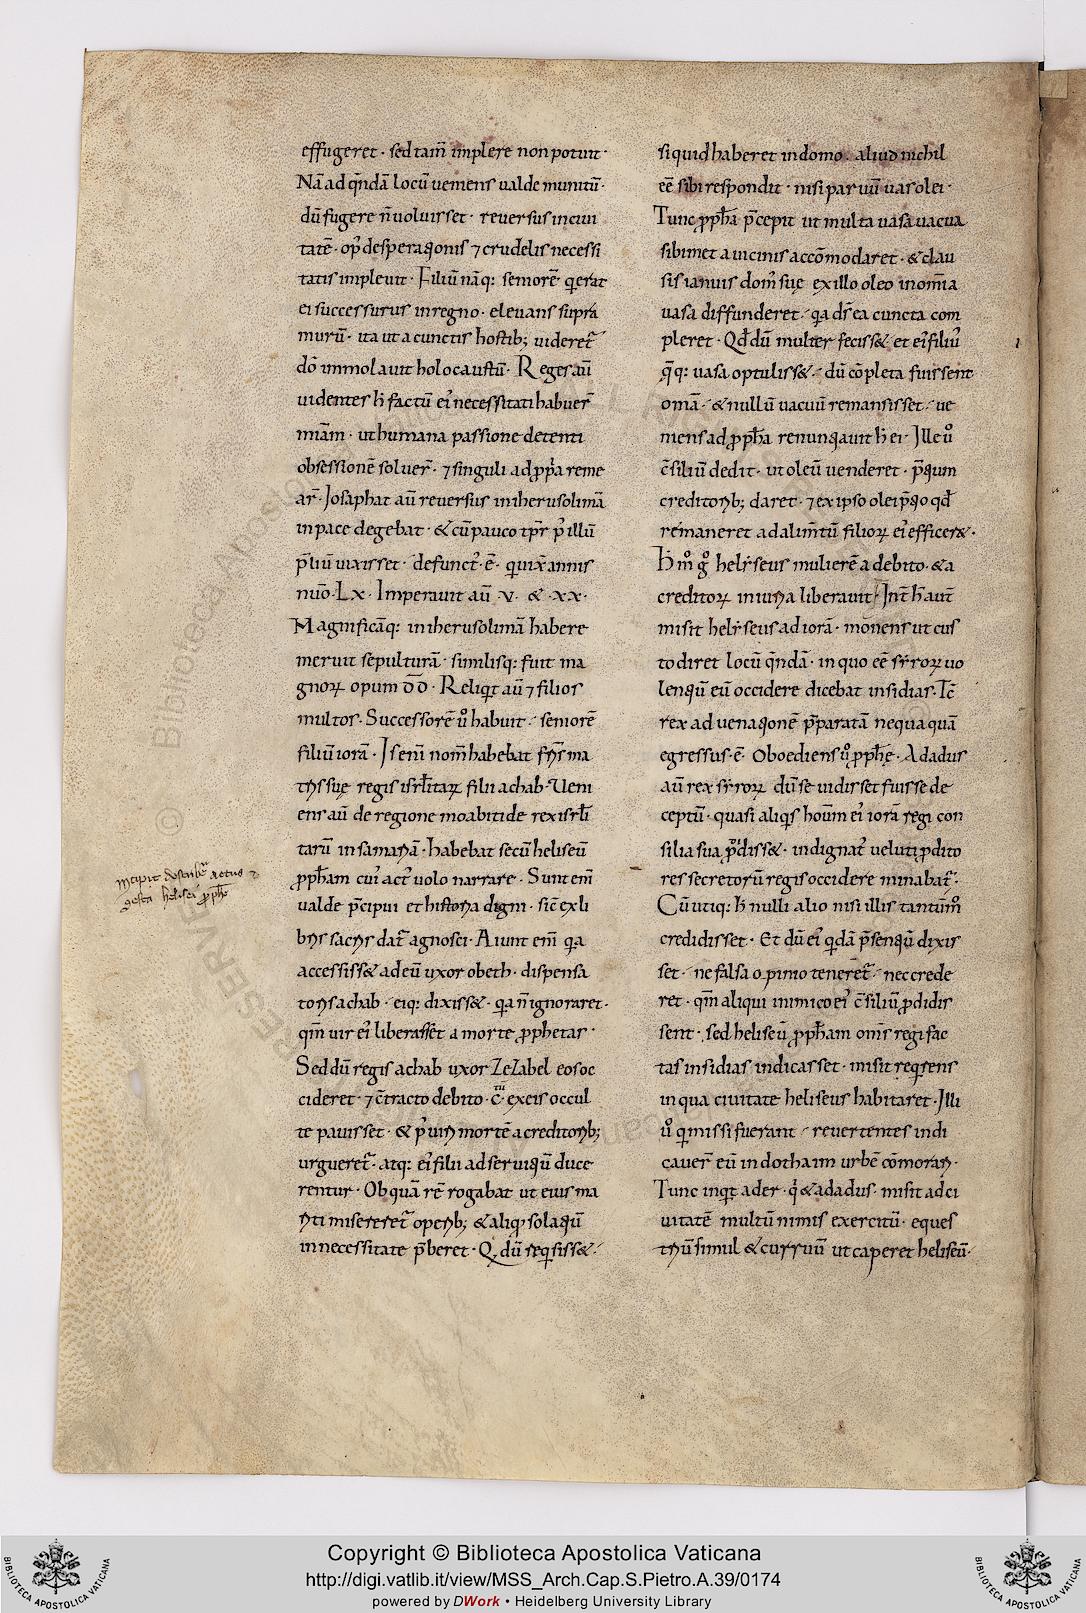 effugeret · sed tam̄ implere non potuit ·
Nā ad q̄ndā locū uemens ualde munitū ·
dū fugere n̄ uoluisset · reuersus in ciui
tatē · op᷒ desperationis ⁊ crudelis necessi
tatis impleuit · Filiū nāq: seniorē q̄ erat
ei successurus in regno · eleuans supra
murū · ita ut a cunctis hostib; uideret᷒
dō immolauit holocaustū · Reges aū
uidentes h̄ factū ei᷒ necessitati habuer̄
miām · ut humana passione detenti
obsessionē soluer̄ · ⁊ singuli ad pp̄a reme
ar̄ · Josaphat aū reuersus in iherusolimā
in pace degebat · & cū pauco tp̄r p᷒ illū
p̄liū uixisset · defunct᷒ ·ē· qui uix̄ annis
nūo · Lx · Imperauit aū · v · & · xx ·
Magnificāq: in iherusolimā habere
meruit sepulturā · similisq: fuit ma
gnoꝝ opum d̄d̄ · Reliqt aū ⁊ filios
multos · Successorē ů habuit · seniorē
filiū iorā · Is eni nom̄ habebat frīs ma
tris suę regis isrl̄itaꝝ filii achab · Ueni
ens aū de regione moabitide rex isrl̄i
tarū in samariā · habebat secū heliseū
ꝓph̄am cui᷒ act᷒ uolo narrare · Sunt em̄
ualde p̄cipui et historia digni · sic̄ ex li
bris sacris dat᷒ agnosci · Aiunt em̄ qa
accessiss& ad eū uxor obeth · dispensa
toris achab · eiq: dixiss& · qa n̄ ignoraret ·
qm̄ uir ei᷒ liberasset a morte ꝓphetas ·
Sed dū regis achab uxor ZeZabel eos oc
cideret · ⁊ c̄tracto debito · c̄tū · ex eis occul
te pauisset · & p᷒ uiri mortē a creditorib;
urgueret᷒ · atq: ei᷒ filii ad seruitiū duce
rentur · Ob quā rē rogabat ut eius ma
riti misereret᷒ operib; & aliqd solatiū
in necessitate p̄beret · Q dū reqsiss& ·
incipit describe᷒ actus ⁊
gesta helisei ꝓph̄e
si quid haberet in domo · aliud nichil
eē sibi respondit · nisi paruū uas olei ·
Tunc ꝓph̄a p̄cepit ut multa uasa uacua
sibimet a uicinis accōmodaret · & clau
sis ianuis dom᷒ suę ex illo oleo in om̄ia
uasa diffunderet · qa d̄s ea cuncta com
pleret · Qd̄ dū mulier feciss& et ei᷒ filiū
q̄q: uasa optuliss& · dū cōpleta fuissent
omā · & nullū uacuū remansisset · ue
niens ad ꝓph̄a renuntiauit h̄ ei · Ille ů
c̄siliū dedit · ut oleū uenderet · p̄tium
creditorib; daret · ⁊ ex ipso olei p̄tio qd̄
remaneret ad alim̄tū filioꝝ ei᷒ efficer& ·
H m̊ g̊ heliseus mulierē a debito · & a
creditoꝝ iniuria liberauit · Int̄ h̄ aut̄
misit heliseus ad iorā · monens ut cus
todiret locū q̄ndā · in quo eē siroꝝ uo
lentiū eū occidere dicebat insidias · Ic̄
rex ad uenationē p̄paratā nequaquā
egressus ·ē· Oboediens ů ꝓph̄ę · Adadus
aū rex siroꝝ dū se uidisset fuisse de
ceptū · quasi aliqs hoīum ei᷒ iorā regi con
silia sua ꝓdidiss& · indignat᷒ ueluti ꝓdito
res secretorū regis occidere minabat᷒ ·
Cū utiq: h̄ nulli alio nisi illis tantūm̊
credidisset · Et dū ei᷒ qdā p̄sentiū dixis
set · ne falsa opinio teneret᷒ · nec crede
ret · qm̄ aliqui inimico ei᷒ c̄siliū ꝓdidis
sent · sed heliseū ꝓph̄am om̄s regi fac
tas insidias indicasset · misit reqrens
in qua ciuitate heliseus habitaret · Illi
ů qi missi fuerant · reuertentes indi
cauer̄ eū in dothaim urbē cōmorari ·
Tunc inqt ader · q̇ & adadus · misit ad ci
uitatē multū nimis exercitū · eques
triū simul & curruū ut caperet heliseū ·
Copyright © Biblioteca Apostolica Vaticana
http://digi.vatlib.it/view/MSS_Arch.Cap.S.Pietro.A.39/0174
powered by DWork • Heidelberg University Library